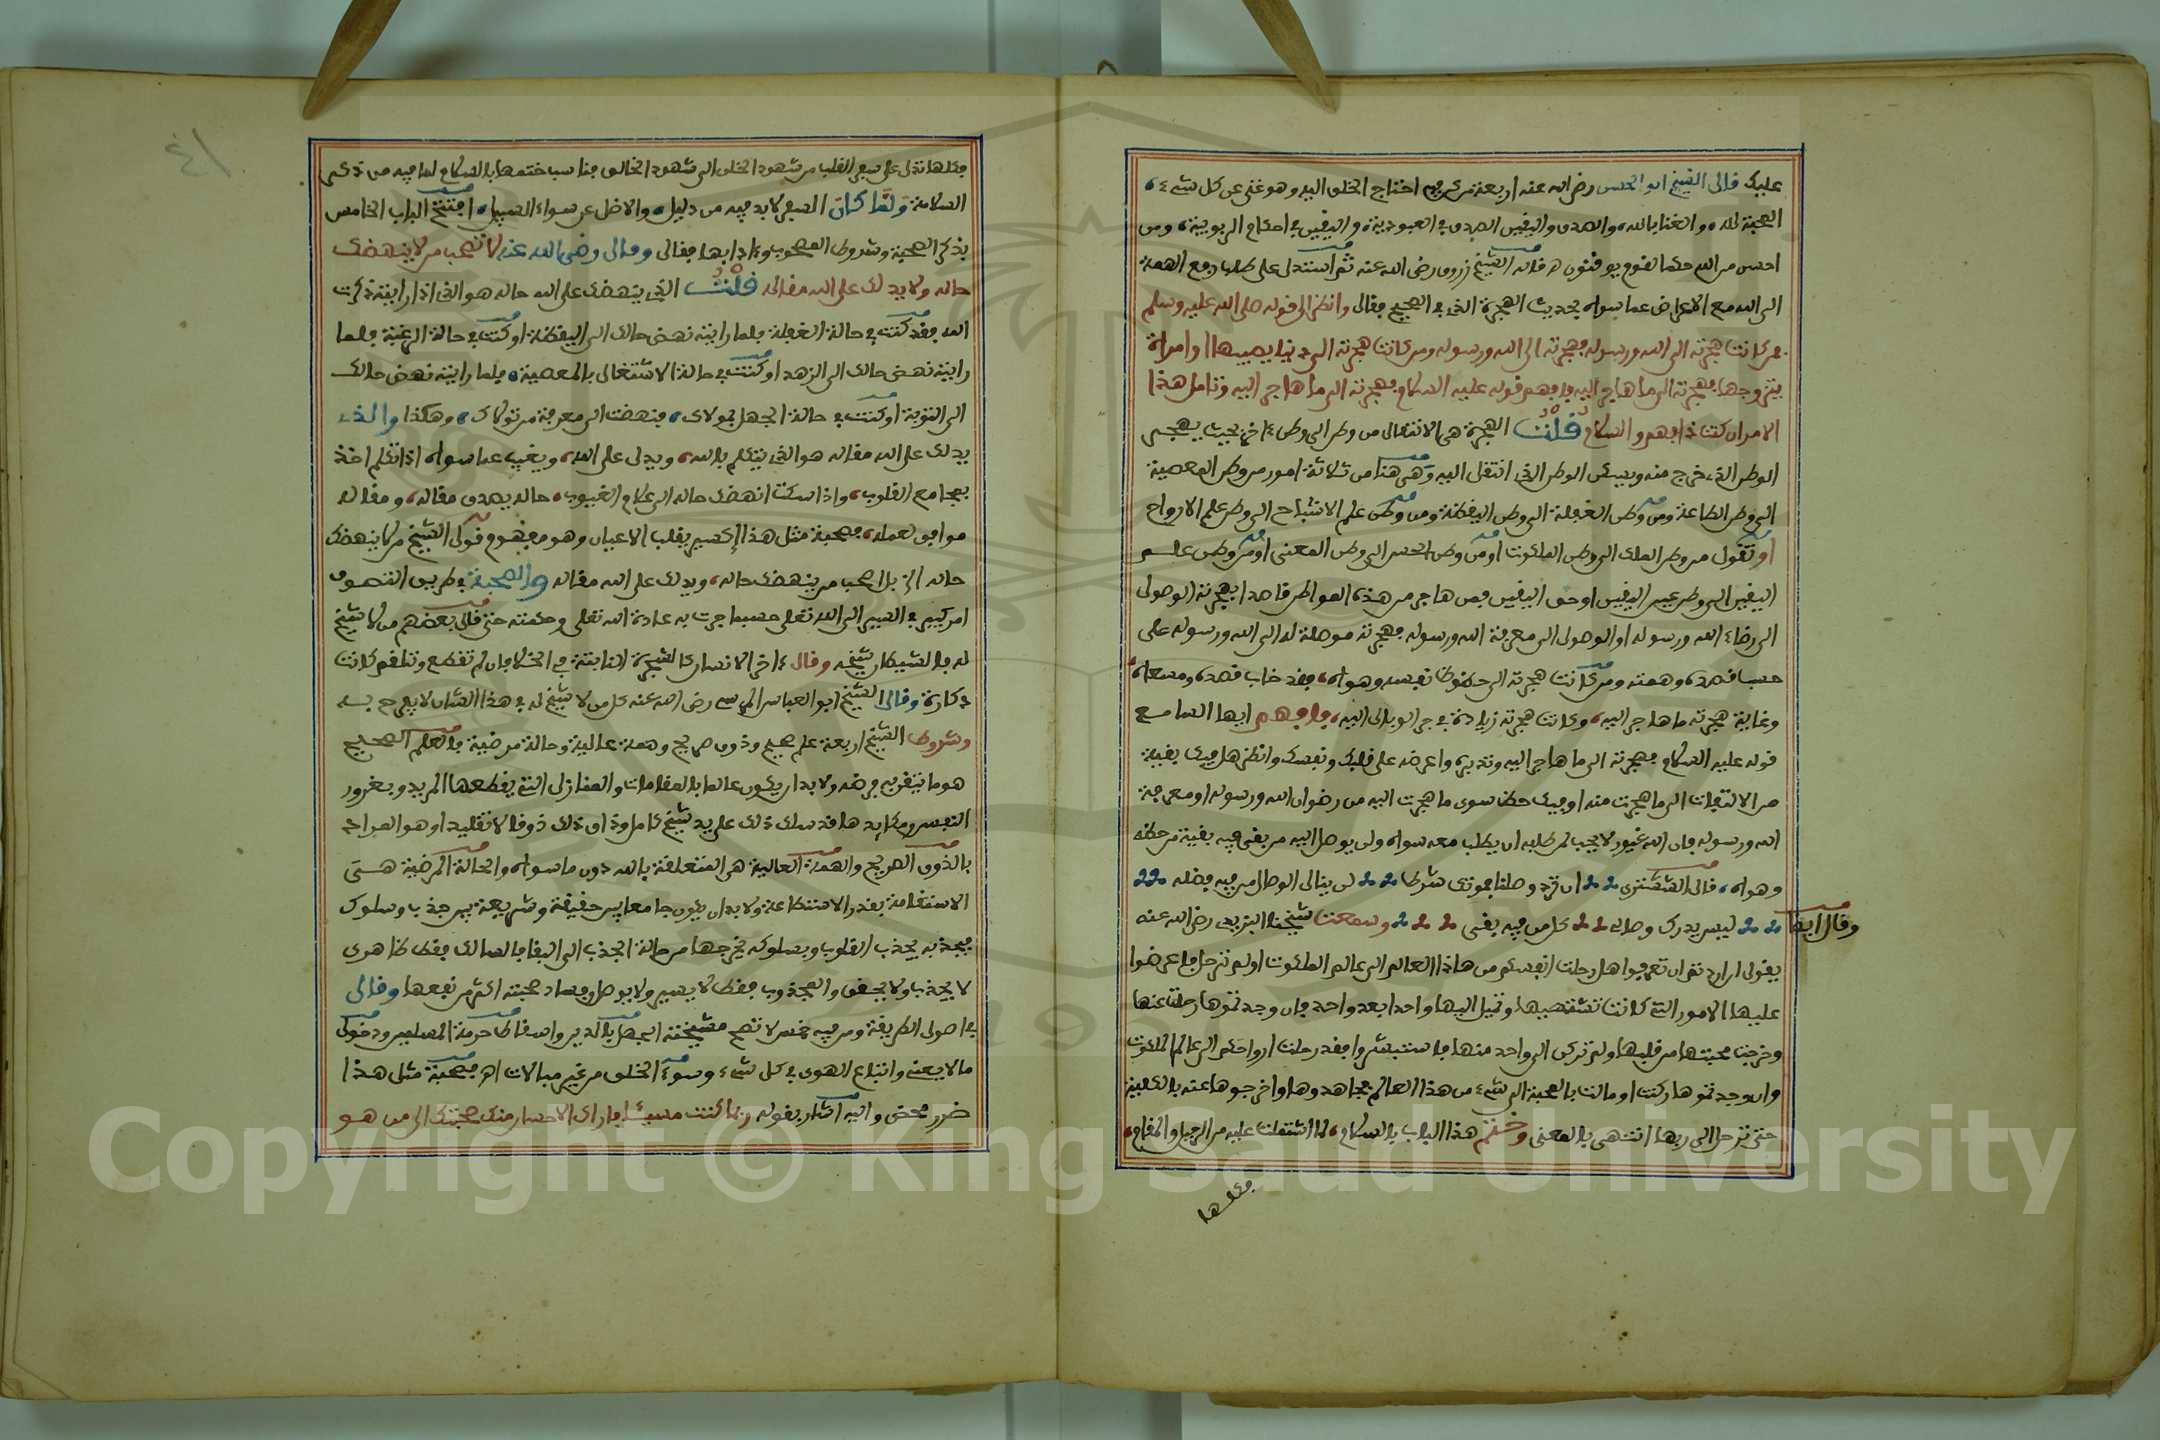 عليك قال الشيخ ابو الحسن رضي الله عنه اربعة من كن فيه احتاج الخلق اليه وهو غني عن كل شيء
المحبة لله والغنا بالله والصدق واليقين الصدق في العبودية واليقين في احكام الربوبية ومن
احسن من الله حكما لقوم يوقنون ه قاله الشيخ زروق رضي الله عنه ثم استدل على طلب رفع الهمة
الى الله مع الاعراض عما سواه بحديث الهجرة الذي في الصحيح فقال وانظر الى قوله صلى الله عليه وسلم
فمن كانت هجرته الى الله ورسوله فهجرته الى الله ورسوله ومن كانت هجرته الى دنيا يصيبها او امراة
يتزوجها فهجرته الى ما هاجر اليه فافهم قوله عليه السلام فهجرته الى ما هاجر اليه وتامل هذا
الامر ان كنت ذا فهم والسلام قلت الهجرة هي الانتقال من وطن الى وطن اخر بحيث يهجر
الوطن الذي خرج منه ويسكن الوطن الذي انتقل اليه وهي هنا من ثلاثة امور من وطن المعصية
الى وطن الطاعة ومن وطن الغفلة الى وطن اليقظة ومن وطن علم الاشباح الى وطن علم الارواح
او تقول من وطن الملك الى وطن الملكوت او من وطن الحس الى وطن المعنى او من وطن علم
اليقين الى وطن عين اليقين او حق اليقين فمن هاجر من هذه المواطن قاصدا بهجرته الوصول
الى رضاء الله ورسوله او الوصول الى معرفة الله ورسوله فهجرته موصلة له الى الله ورسوله على
حسب قصده وهمته ومن كانت هجرته الى حظوظ نفسه وهواه فقد خاب قصده ومسعاه
وغاية هجرته ما هاجر اليه وكانت هجرته زيادة في جر الوبال اليه فافهم ايها السامع
قوله عليه السلام فهجرته الى ما هاجر اليه وتدبره واعرضه على قلبك ونفسك وانظر هل فيك بقية
من الالتفات الى ما هجرت منه او فيك حظ سوى ما هجرت اليه من رضوان الله ورسوله او معرفة
الله ورسوله فان الله غيور لا يحب لمن طلبه ان يطلب معه سواه ولن يوصل اليه من بقي فيه بقية من حظه
وهواه قال الششتري ان ترد وصلنا فموتك شرط لن ينال الوصال من فيه فضله
وقال ايضا ليس يدرك وصالي كل من فيه بقي وسمعت شيخنا البزيدي رضي الله عنه
يقول ان اردتم ان تعرفوا هل رحلت انفسكم من هاذا العالم الى عالم الملكوت او لم ترحل فاعرضوا
عليها الامور التي كانت تشتهيها وتميل اليها واحدا بعد واحد فان وجدتموها رحلت عنها
وخرجت محبتها من قلبها ولم تركن الى واحد منها فاستبشروا فقد رحلت ارواحكم الى عالم الملكوت
وان وجدتموها ركنت او مالت بالمحبة الى شيء من هذا العالم فجاهدوها واخرجوها عنه بالكلية
حتى ترحل الى ربها انتهى بالمعنى وختم هذا الباب بالسلام لما اشتملت عليه من الرحيل والمقام
فكلها
فكلها تدل على سفر القلب من شهود الخلق الى شهود الخالق فناسب ختمها بالسلام لما فيه من ذكر
السلامة ولما كان السفر لابد فيه من دليل والا ضل عن سواء السبيل افتتح الباب الخامس
بذكر الصحبة وشروط المصحوب وءادابها فقال وقال رضي الله عنه لا تصحب من لا ينهضك
حاله ولا يدلك على الله مقاله قلت الذي ينهضك على الله حاله هو الذي اذا رايته ذكرت
الله فقد كنت في حالة الغفلة فلما رايته نهض حالك الى اليقظة او كنت في حالة الرغبة فلما
رايته نهض حالك الى الزهد او كنت في حالة الاشتغال بالمعصية فلما رايته نهض حالك
الى التوبة او كنت في حالة الجهل بمولاك فنهضت الى معرفة من تولاك وهكذا والذي
يدلك على الله مقاله هو الذي يتكلم بالله ويدل على الله ويغيب عما سواه اذا تكلم اخذ
بمجامع القلوب واذا سكت انهضك حاله الى علام الغيوب حاله يصدق مقاله ومقاله
موافق لعمله فصحبة مثل هذا اكسير يقلب الاعيان وهو مفهوم قول الشيخ من لا ينهضك
حاله الخ بل اصحب من ينهضك حاله ويدلك على الله مقاله والصحبة في طريق التصوف
امر كبير في السير الى الله تعلى حسبما جرت به عادة الله تعلى وحكمته حتى قال بعضهم من لا شيخ
له فالشيطان شيخه وقال ءاخر الانسان كالشجرة النابتة في الخلا فان لم تقطع وتلقم كانت
دكارة وقال الشيخ ابو العباس المرسي رضي الله عنه كل من لا شيخ له في هذا الشان لا يفرح به
وشروط الشيخ اربعة علم صحيح وذوق صريح وهمة عالية وحالة مرضية فالعلم الصحيح
هو ما يتقن به فرضه ولا بد ان يكون عالما بالمقامات والمنازل التي يقطعها المريد وبغرور
النفس ومكايدها قد سلك ذلك على يد شيخ كامل وذاق ذلك ذوقا لا تقليدا وهو المراد
بالذوق الصريح والهمة العالية هي المتعلقة بالله دون ما سواه والحالة المرضية هي
الاستقامة بقدر الاستطاعة ولا بد ان يكون جامعا بين حقيقة وشريعة بين جذب وسلوك
فبجذبه يجذب القلوب وبسلوكه يخرجها من حالة الجذب الى البقا فالسالك فقط ظاهري
لا يجذب ولا يحقق والمجذوب فقط لا يسير ولا يوصل وفساد صحبته اكثر من نفعها وقال
في اصول الطريقة ومن فيه خمس لا تصح مشيخته الجهل بالدين واسقاط حرمة المسلمين ودخول
ما لا يعني واتباع الهوى في كل شيء وسوء الخلق من غير مبالات اه فصحبة مثل هذا
ضرر محض واليه اشار بقوله ربما كنت مسيئا فاراك الاحسان منك صحبتك الى من هو